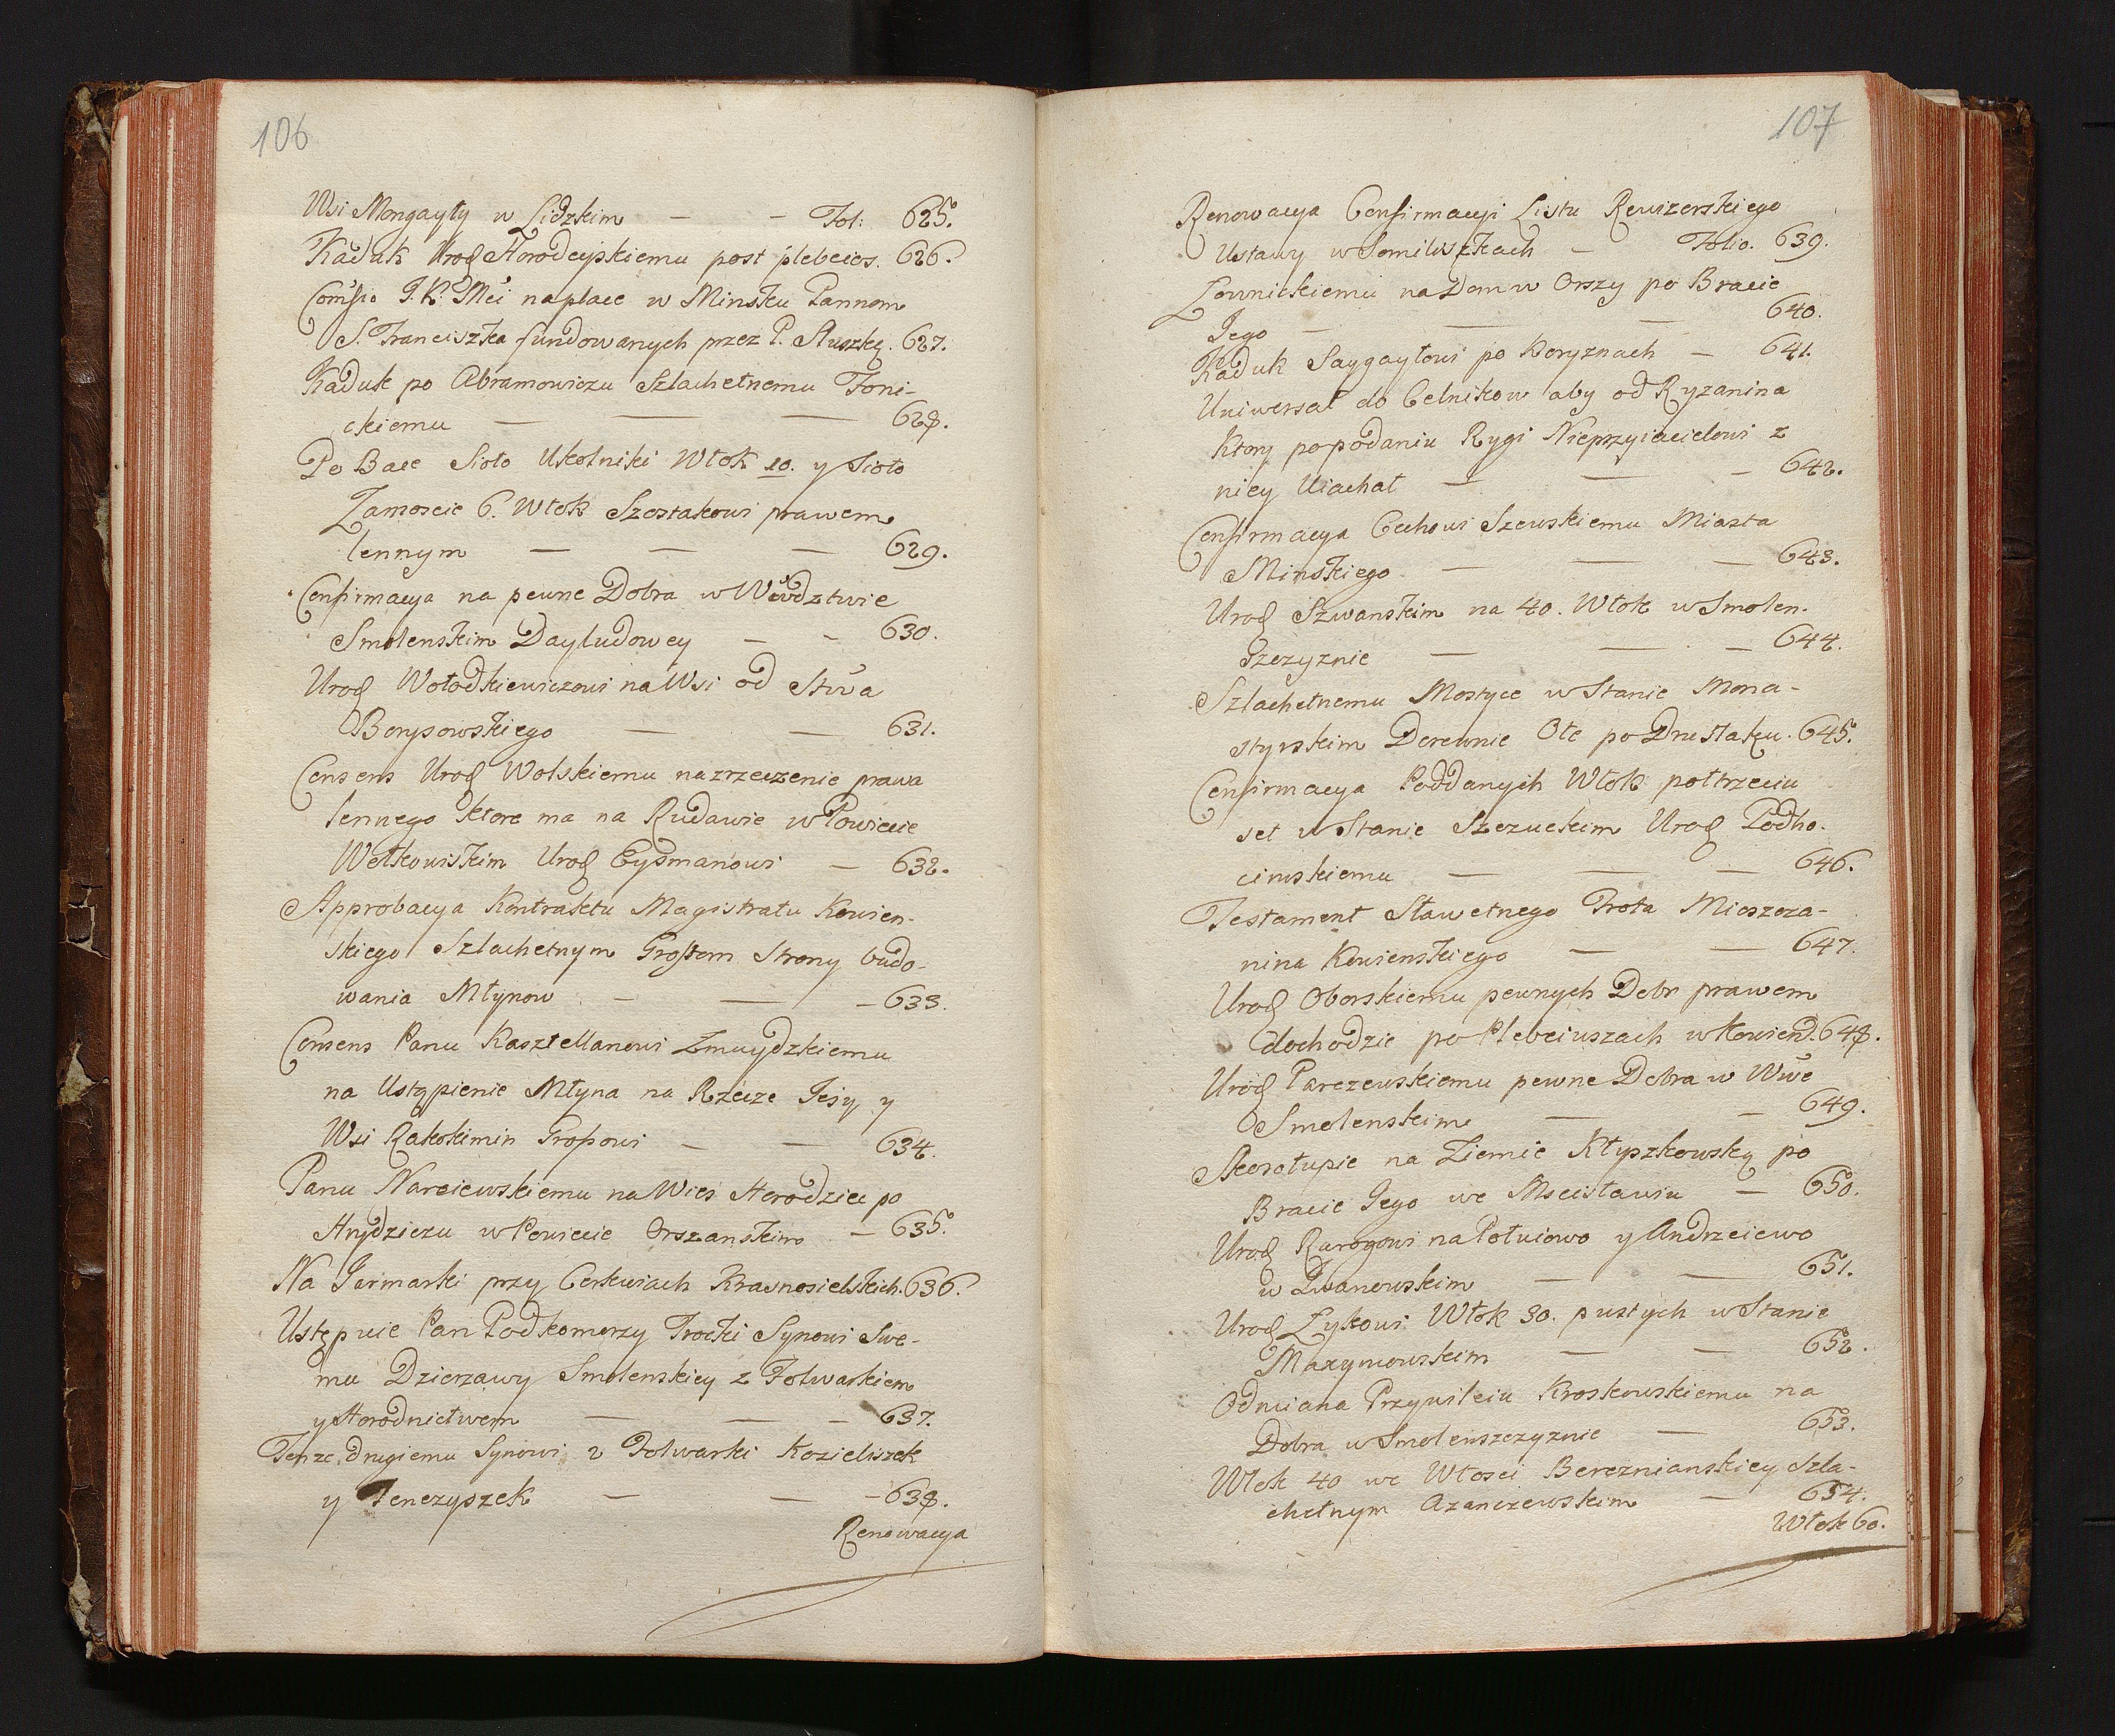 106
Wsi Mongayły w Lidzkim — — Fol: 625.
Kaduk Urod Horodeyskiemu post plebeios. 626.
Comsio J. K. Mći na place w Minsku Pannom
S. Franciszka fundowanych przez P. Słuszkę. 627.
Kaduk po Abramowiczu Szlachetnemu Foni-
ckiemu — — — 628.
Po Bace Sioło Ukolniki Włok 10. y Sioło
Zamoscie 6. Włok Szostakowi prawem
lennym — — — 629.
Confirmacya na pewne Dobra w Wwdztwie
Smolenskim Dayludowey — - 630.
Urod Wołodkiewiczowi na Wsi od Stwa
Borysowskiego — — 631.
Consens Urod Wolskiemu na zrzeczenie prawa
lennego ktore ma na Rudawie w Powiecie
Wołkowiskim Urod Eysmanowi — 632.
Approbacya Kontraktu Magistratu Kowien-
skiego Szlachetnym Grossom Strony budo-
wania Młynow - — - 633.
Consens Panu Kasztellanowi Zmuydzkiemu
na Ustąpienie Młyna na Rzecze Jesy y
Wsi Rakokimin Gropowi — — 634.
Panu Narciewskiemu na Wies Horodziec po
Hrydziczu w Powiecie Orszanskim — 635.
Na Jarmarki przy Cerkwiach Krasnosielskich. 636.
Ustępuie Pan Podkomorzy Trocki Synowi Swe-
mu Dzierzawy Smolenskiey z Folwarkiem
y Horodnictwem — — - 637.
Tenze drugiemu Synowi 2 Folwarki Kozieliszek
y Jenczyszek — — - 638.
Renowacya
107
Renowacya Confirmacyi Listu Rewizorskiego
Ustawy w Somiliszkach — Folio. 639.
Łownickiemu na Dom w Orszy po Bracie
Jego — — — 640.
Kaduk Saygayłowi po Koryznach — 641.
Uniwersał do Celnikow aby od Ryzanina
Ktory po podaniu Rygi Nieprzyiacielowi z
niey Uiachał — — - 642.
Confirmacya Cechowi Szewskiemu Miasta
Minskiego — — — 643.
Urod Szwanskim na 40. Włok w Smolen.
szczyznie — — — 644.
Szlachetnemu Mostyce w Stanie Mona-
styrskim Derewnie Ole po Druszlaku. 645.
Confirmacya Poddanych Włok połtrzeciu
set w Stanie Szczuckim Urod Podho.
cimskiemu — — — 646.
Testament Sławetnego Prota Mieszcza-
nina Kowienskiego — — 647.
Urod Oborskiemu pewnych Dobr prawem
dochodzic po Plebeiuszach w Kowien. 648.
Urod Parczewskiemu pewne Dobra w Wwe
Smolenskim — - 649.
Skorołupie na Ziemie Kłyszkowską po
Bracie Jego we Mscisławiu — 650.
Urod Rarogowi na Połuiowo y Andrzeiewo
w Iwanowskim — — 651.
Urod Zykowi Włok 30. pustych w Stanie
Maxymowskim — — 652.
Odmiana Przywileiu Kroskowskiemu na
Dobra w Smolenszczyznie — 653.
Włok 40 we Włosci Bereznianskiey Szla-
chetnym Azanczewskim — 654.
Włok 60.